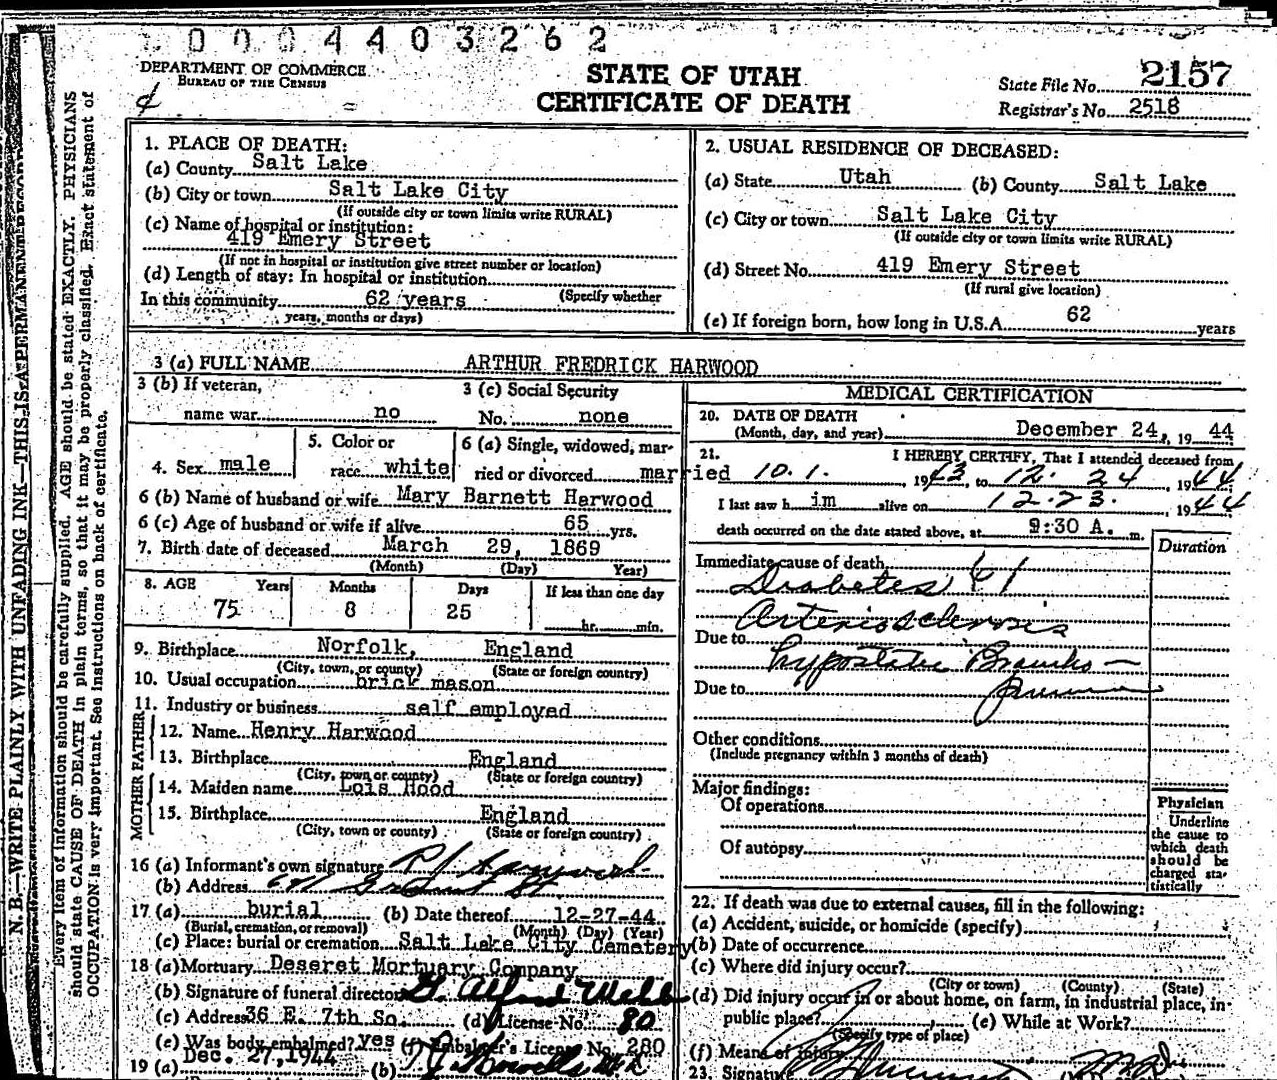 0 0 0 4 4 0 3 2 6 2
DEPARTMENT OF COMMERCE
BUREAU OF THE CENSUS
STATE OF UTAH
CERTIFICATE OF DEATH
State File No. 2157
Registrar's No. 2518
N. B.—WRITE PLAINLY WITH UNFADING INK—THIS IS A PERMANENT RECORD
Every item of information should be carefully supplied. AGE should be stated EXACTLY. PHYSICIANS
should state CAUSE OF DEATH in plain terms, so that it may be properly classified. Exact statement of
OCCUPATION is very important. See instructions on back of certificate.
1. PLACE OF DEATH:
(a) County Salt Lake
(b) City or town Salt Lake City
(If outside city or town limits write RURAL)
(c) Name of hospital or institution:
419 Emery Street
(If not in hospital or institution give street number or location)
(d) Length of stay: In hospital or institution
In this community 62 years (Specify whether
years, months or days)
2. USUAL RESIDENCE OF DECEASED:
(a) State Utah (b) County Salt Lake
(c) City or town Salt Lake City
(If outside city or town limits write RURAL)
(d) Street No. 419 Emery Street
(If rural give location)
(e) If foreign born, how long in U.S.A. 62 years
3 (a) FULL NAME ARTHUR FREDRICK HARWOOD
3 (b) If veteran,
name war no
3 (c) Social Security
No. none
4. Sex male
5. Color or
race white
6 (a) Single, widowed, mar-
ried or divorced married
6 (b) Name of husband or wife Mary Barnett Harwood
6 (c) Age of husband or wife if alive 65 yrs.
7. Birth date of deceased March 29, 1869
(Month) (Day) Year)
8. AGE Years Months Days If less than one day
75 8 25 hr. min.
9. Birthplace Norfolk, England
(City, town, or county) (State or foreign country)
10. Usual occupation brick mason
11. Industry or business self employed
FATHER
12. Name Henry Harwood
13. Birthplace England
(City, town or county) (State or foreign country)
MOTHER
14. Maiden name Lois Hood
15. Birthplace England
(City, town or county) (State or foreign country)
16 (a) Informant's own signature
(b) Address
17 (a) burial (b) Date thereof 12-27-44
(Burial, cremation, or removal) (Month) (Day) (Year)
(c) Place: burial or cremation Salt Lake City Cemetery
18 (a) Mortuary Deseret Mortuary Company
(b) Signature of funeral director G. Alford Webb
(c) Address 36 E. 7th So. (d) License No. 80
(e) Was body embalmed? yes (f) Embalmer's License No. 280
19 (a) Dec. 27, 1944 (b)
MEDICAL CERTIFICATION
20. DATE OF DEATH
(Month, day, and year) December 24, 19 44
21. I HEREBY CERTIFY, That I attended deceased from
10.1. , 1943, to 12. 24 , 1944
I last saw h im alive on 12.23. , 1944
death occurred on the date stated above, at 9:30 A. m.
Duration
Immediate cause of death 61
Diabetes
Arteriosclerosis
Due to
hypostatic Broncho-
Due to
Other conditions
(Include pregnancy within 3 months of death)
Major findings:
Of operations
Of autopsy
Physician
Underline
the cause to
which death
should be
charged sta-
tistically
22. If death was due to external causes, fill in the following:
(a) Accident, suicide, or homicide (specify)
(b) Date of occurrence
(c) Where did injury occur?
(City or town) (County) (State)
(d) Did injury occur in or about home, on farm, in industrial place, in-
public place? (e) While at Work?
(Specify type of place)
(f) Means of injury
23. Signature